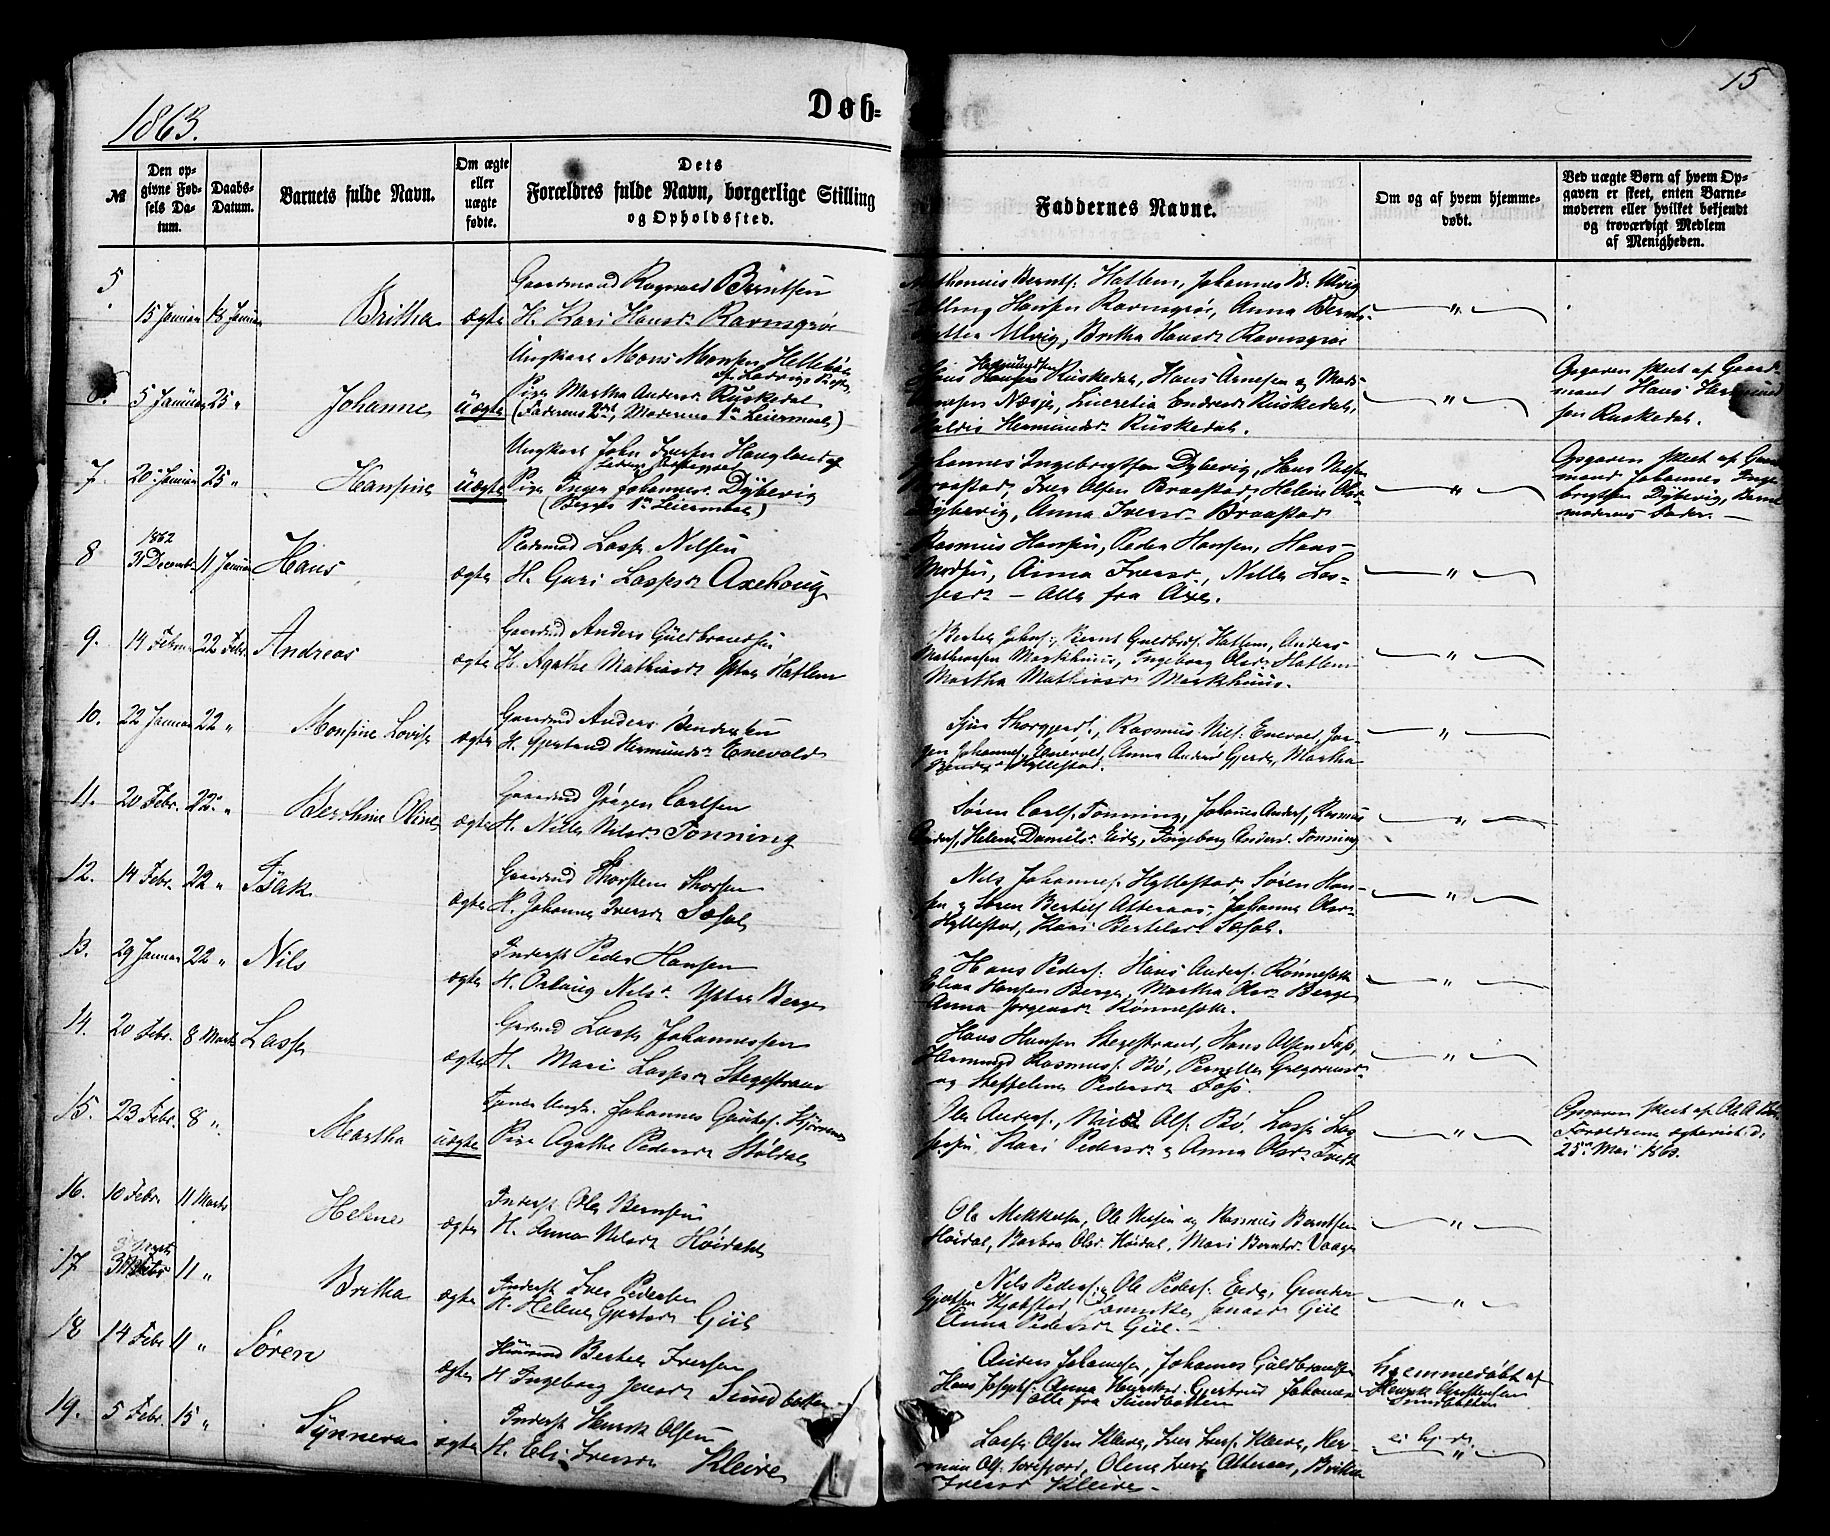 1863.
Døb=
15
№
Den opgivne Fødsels Datum.
Daabs-Datum.
Barnets fulde Navn.
Om ægte eller uægte fødte.
Dets Forældres fulde Navn, borgerlige Stilling og Opholdssted.
Faddernes Navne.
Om og af hvem hjemmedøbt.
Ved uægte Børn af hvem Opgaven er skeet, enten Barnemoderen eller hvilket bekjendt og troværdigt Medlem af Menigheden.
5
15 Januar
Januar
Britha
ægte
Gaardmand Ragnald Berntsen
H. Kari Hansdr Ravnsgrøe
Berntsf. Hatlem, Johannes B. Ulvig
Hansen Ravnsgrøe, Anna Bernts-
Ulvig, Britha Hansdr Ravnsgroe
"
6.
5 Januar
25 "
Johanne
Uægte
Ungkarl Mons Monsen Hellebø
Pige Martha Andersdr Ruskedal
(Faderens 2det, Moderens 1ste Leiermaal)
Hans Ruskedal, Hans Arnesen og Mads
Lucretia Endresdr Ruskedal,
Hermundsdr Ruskedal.
"
Opgaven skeet af Gaard-
mand Hans
sen Ruskedal.
7.
20 Januar
25 "
Hansine
Uægte
Ungkarl John Iversen Haugland af
Pige Inger Johannesdr Dybevig
(Begges 1ste Leiermaal)
Johannes Ingebrigtsen Dybevig, Hans Nilsen
Braastad, Iver Olsen Braastad, Helene Olsdr
Dybevig, Anna Iversdr Braastad
"
Opgaven skeet af Gaard-
mand Johannes Inge-
brigtsen Dybevig, Barne-
moderens Fader. —
8
1862
31 December
11 Januar
Hans
ægte
Pladsmand Lasse Nilsen
H. Guri Lassesdr Axehoug
Rasmus Hansen, Peder Hansen, Hans
Madsen, Anna Iversdr, Nille Las-
sesdr — Alle fra Axe.
"
9.
14 Februar
22 Febr.
Andreas
ægte
Gaardmd Anders Guldbrandsen
H. Agathe Mathiasdr Ytre Hatlem
Bertel Johns., Bernt Guldbrds. Hatlem, Anders
Mathiassen Markhuus, Ingeborg Olsdr Hatlem
Martha Mathiasdr Markhuus.
"
10.
22 Januar
22 "
Monsine Lovise
ægte
Gaardmd Anders Bendixsen
H. Gjertrud Hermundsdr Enevold
Rasmus Nils. Enevold, Jør-
gen Johannes. Enevold, Anna Andersdr Gjerde, Martha
Bendixsdr Hyllestad.
"
11.
20 Febr.
22 "
Berthine Oline
ægte
Gaardmd Jörgen Carlsen
H. Nille Nilsdr Tonning
Søren Carls. Tonning, Johannes Anders., Rasmus
Anders., Helene Daniels. Eide, Ingeborg Andersdr Tonning
"
12.
14 Febr.
22 "
Isak
ægte
Gaardmd Thorsten Thorsen
H. Johanne Iversdr Sæsol
Nils Johannes. Hyllestad, Søren Han-
sen, Søren Bertels Atteraas, Johanne Olsdr
Hyllestad, Kari Bertelsdr Sæsol.
"
13.
29 Januar
22 "
Nils
ægte
Inderst Peder Hansen
H. Oelaug Nilsdr Ytre Berge
Hans Peders. Hans Anders. Rønneset
Elias Hansen Berge, Martha Olsdr Berge
Anna Jørgensdr Rønneset.
"
14.
20 Febr.
8 Marts
Lasse
ægte
Gaardmd Lasse Johannessen
H. Mari Lassesdr Stegestrand
Hans Hansen Stegestrand, Hans Olsen Foss,
Hermund Rasmus. Bø, Pernille Gregoriusdr
og Steffeline Pedersdr Foss.
"
15.
23 Febr.
8 "
Martha
uægte
Tjener Ungk. Johannes Gautes.
Pige Agathe Pedersdr Støldal
Ole Anders., Nils Ols. Bø, Lasse Las-
sesen, Kari Pedersdr & Anna Olsdr Tvedt
"
Opgaven skeet af Ole A.
Forældrene ægteviet d.
25de Mai 1863.
16.
10 Febr.
11 Marts
Helene
ægte
Inderst Ole Berntsen
H. Anna Nilsdr Høidal
Ole Mikkelsen, Ole Nilsen og Rasmus Berntsen
Høidal, Barbra Olsdr Høidal, Mari Berntsdr Vaage
"
17
11 "
Britha
ægte
Inderst Iver Pedersen
H. Helene Giil
Nils Peders., Ole Peders. Eide, Gunder
Jensdr Giil
Anna Pedersdr Giil. —
"
18
14 Febr
11 "
Søren
ægte
Huusmd Bertel Iversen
H. Ingeborg Jensdr Sundbotten
Anders Johannesen, Johannes Guldbrandsen
Hans Josephs. Anna Henriksdr Gjertrud Johannes
Alle fra Sundbotten
hjemmedøbt af
Henrik Christensen
Sundbotten
19.
5 Febr.
15 "
Synneva
ægte
Inderst Henrik Olsen
H. Eli Iversdr Kleive
Lasse Olsen Kleive, Iver Ivers. Kleive, Her-
man Ols. Sørefjord, Olina Iversdr Atteraas, Britha
Iversdr Kleive. —
"